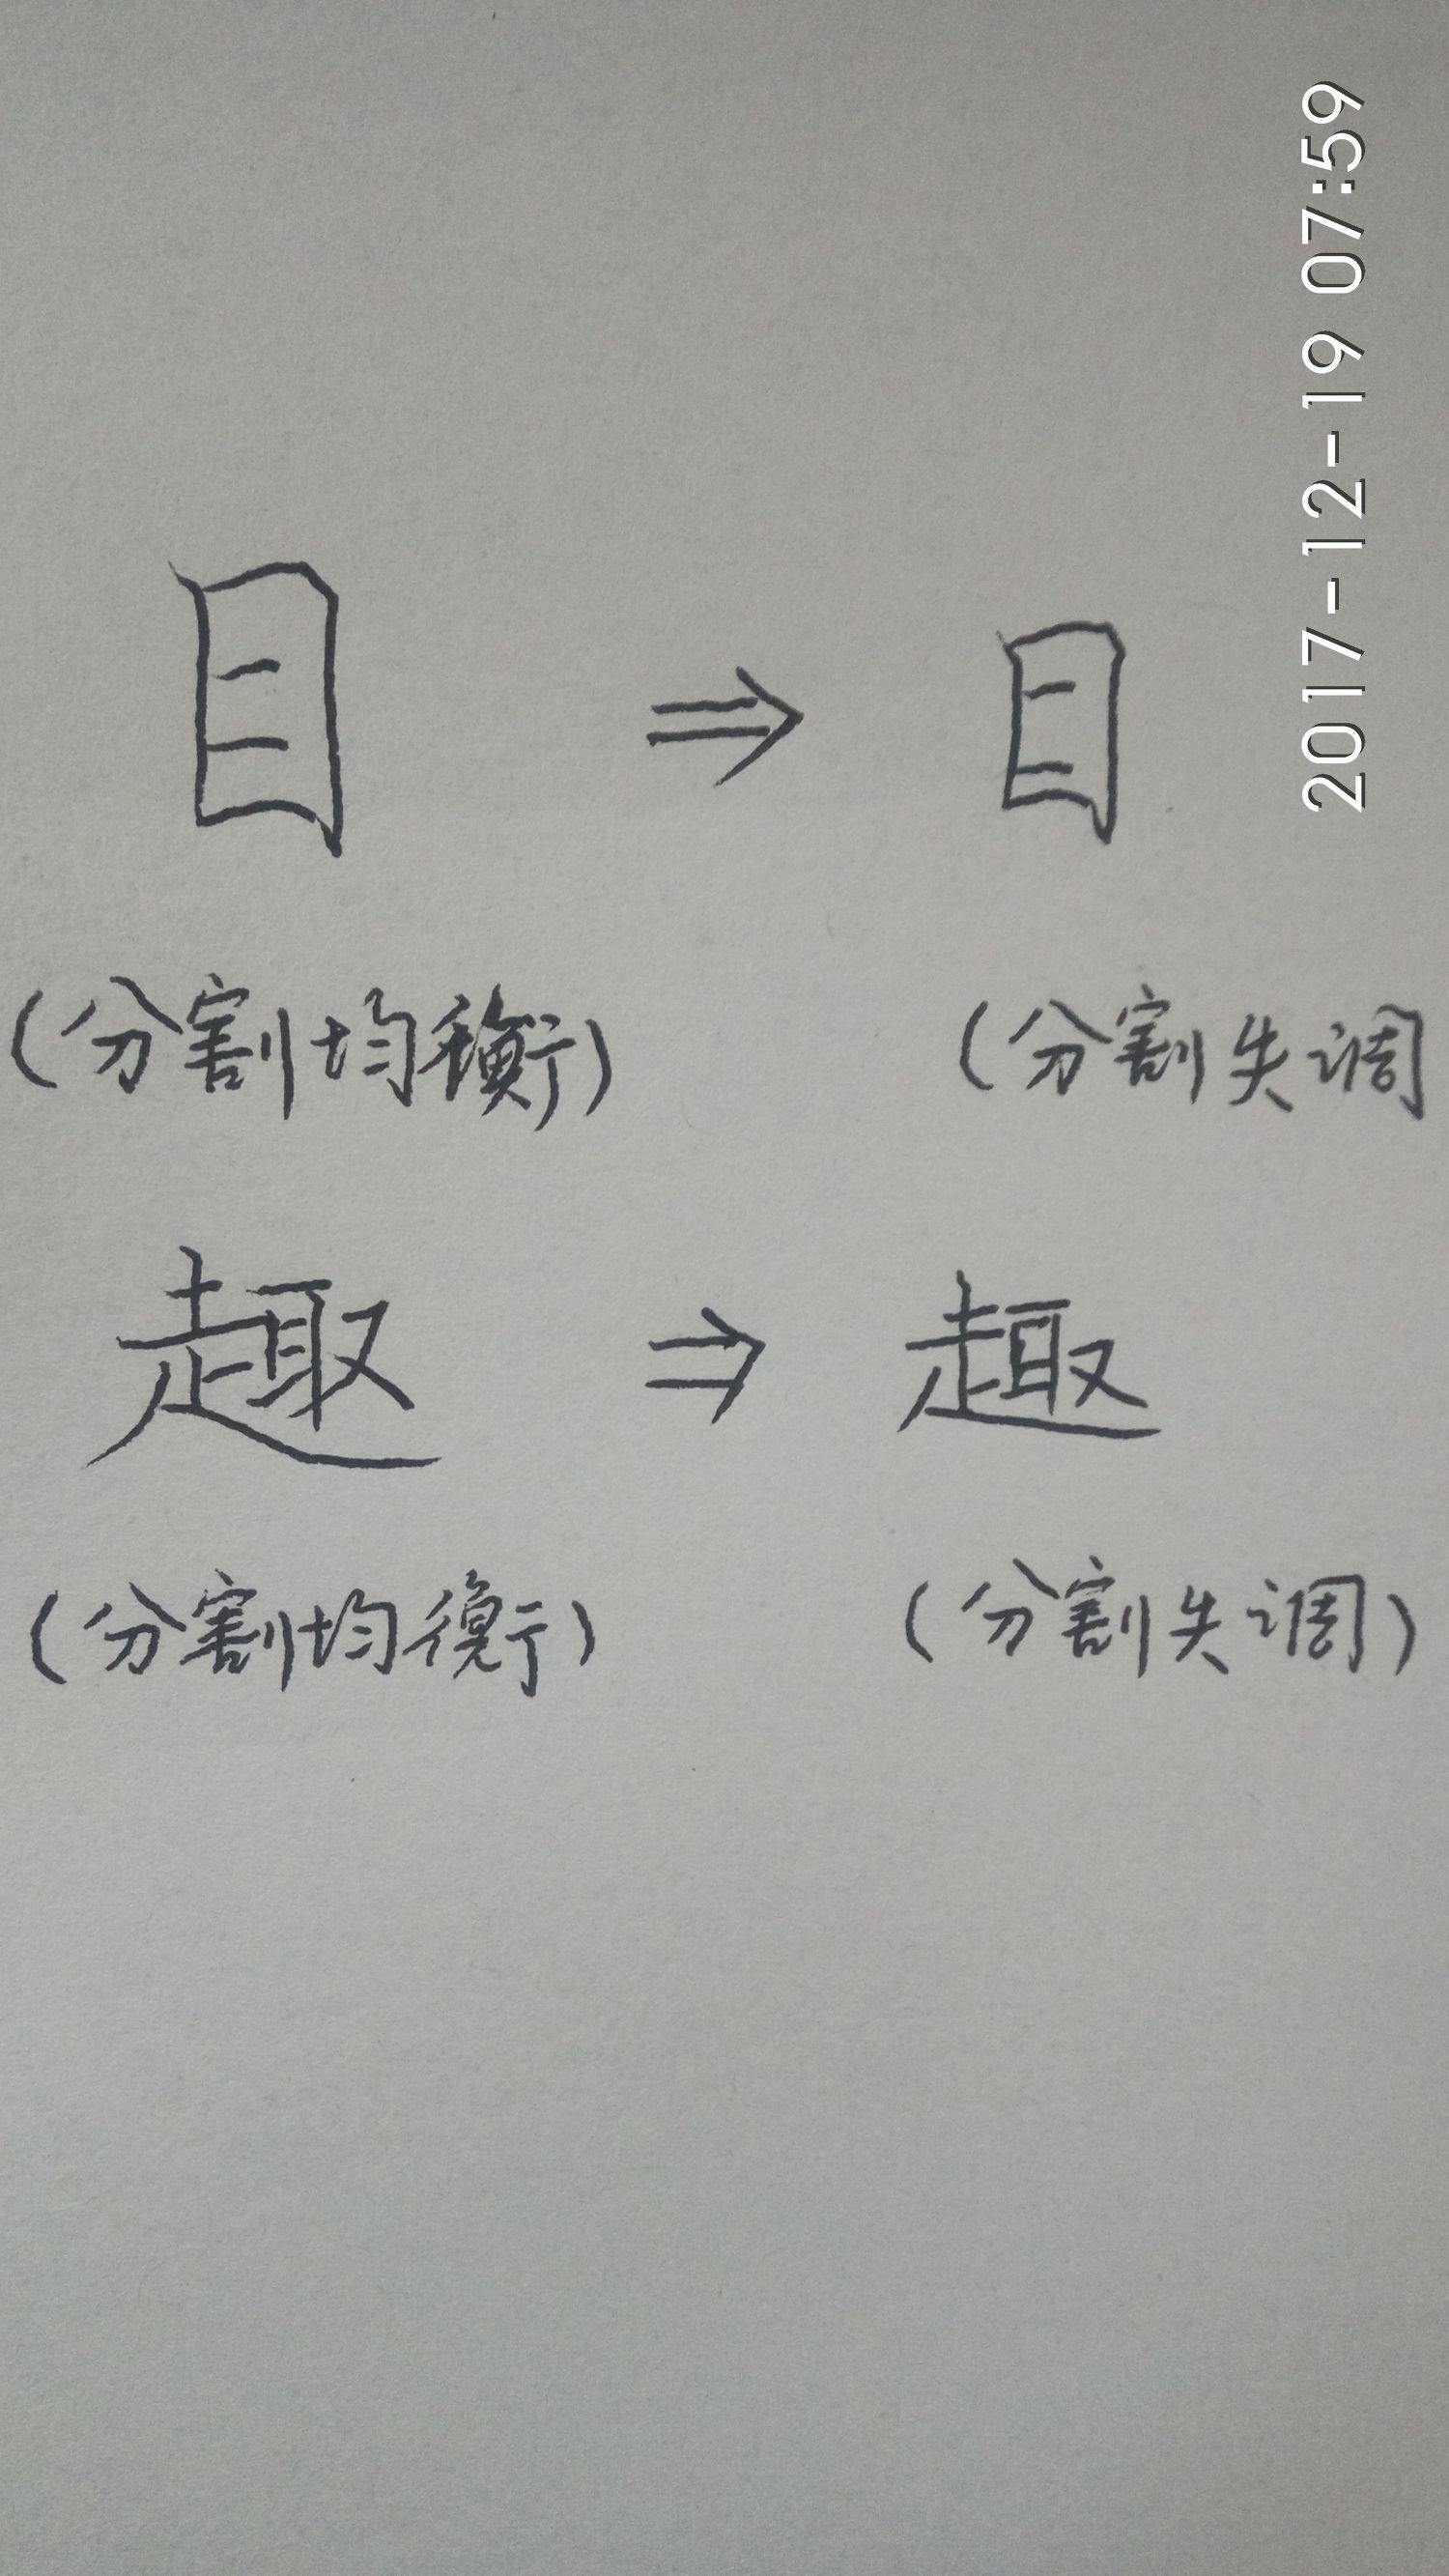 2017-12-19 07:59
目 ⇒ 目
(分割均衡) (分割失调
趣 ⇒ 趣
(分割均衡) (分割失调)